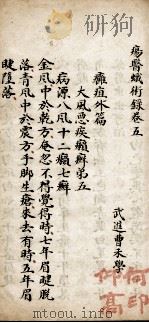 瘍醫蛾術錄卷五
武進曹禾學
癰疽外篇
大風惡疾癩癬第五
病源八風十二癩七癬
金風中於乾方奄忽不得覺得時七年眉睫脫
落青風中於震方手脚生瘡來去有時五年眉
睫墮落
何印
仰高